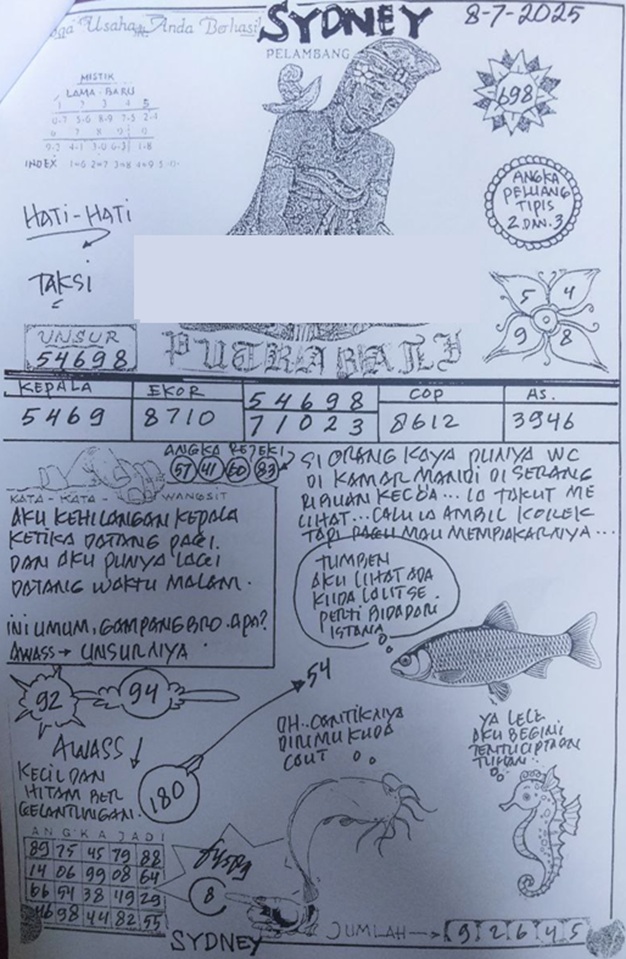 Usaha Anda Berhasil
SYDNEY
8-7-2025
PELAMBANG
MISTIK
LAMA-BARU
1 2 3 4 5
0-7 5-6 8-9 7-5 2-4
6 7 8 9 0
9-2 4-1 3-0 6-3 1-8
INDEX 1=6 2=7 3=8 4=9 5=0
698
ANGKA
PELUANG
TIPIS
2 DAN 3
HATI-HATI
TAKSI
5 4
9 8
UNSUR
54698
PUTRA BALI
KEPALA EKOR 54698 COP AS.
5469 8710 71023 8612 3946
ANGKA REJEKI
57 41 60 83
SI ORANG KAYA PUNYA WC
DI KAMAR MANDI DI SERANG
RIBUAN KECOA... IA TAKUT ME
LIHAT... LALU IA AMBIL KOREK
TAPI RAGU MAU MEMBAKARNYA...
KATA-KATA-WANGSIT
AKU KEHILANGAN KEPALA
KETIKA DATANG PAGI.
DAN AKU PUNYA LAGI
DATANG WAKTU MALAM.
INI UMUM, GAMPANG BRO. APA?
AWASS → UNSURNIYA
TUMBEN
AKU LIHAT ADA
KUDA LAUT SE.
PERTI BIDADARI
ISTANA
92
94
54
AWASS!
KECIL DAN
HITAM BER
GELANTUNGAN.
180
OH.. CANTIKNIYA
DIRIMU KUDA
LAUT
YA LELE
AKU BEGINI
TENTU CIPTAAN
TUHAN..
ANGKA JADI
89 75 45 79 88
14 06 99 08 64
66 54 38 49 29
46 98 44 82 55
8
SYDNEY
JUMLAH → 9 2 6 4 5